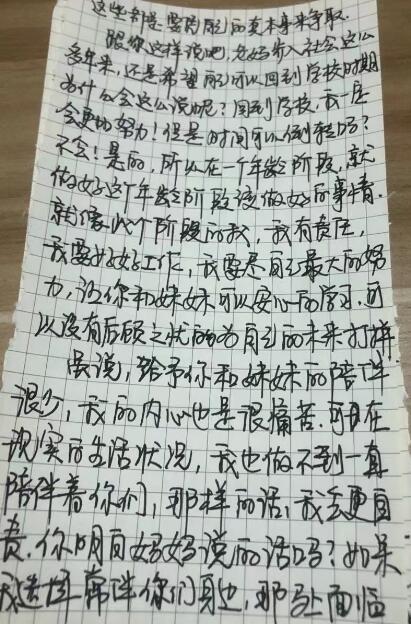 这些都是要用自己的真本事来争取.
跟你这样说吧,老妈步入社会这么
多年来,还是希望可以回到学校时期
为什么会这么说呢?回到学校,我一定
会更加努力!但是时间可以倒转吗?
不会!是的,所以在一个年龄阶段,就
做好这个年龄阶段该做好的事情.
就像此个阶段的我,我有责任,
我要好好工作,我要尽自己最大的努
力,让你和妹妹可以安心的学习,可
以没有后顾之忧的为自己的未来打拼
虽说,给予你和妹妹的陪伴
很少,我的内心也是很痛苦.可在
现实的生活状况,我也做不到一直
陪伴着你们,那样的话,我会更自
责.你明白妈妈说的话吗?如果
我选择常伴你们身边,那么面临